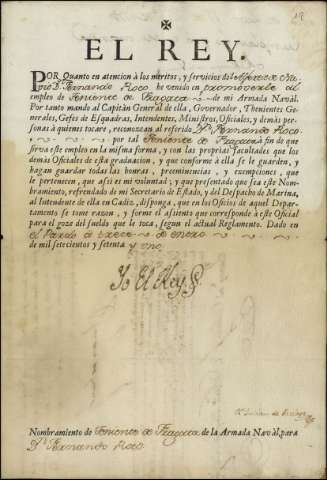 18
EL REY.
POR Quanto en atencion à los méritos, y servicios del Alferez de
Dn. Fernando Roco he venido en promoverle al
empleo de Teniente de Fragata de mi Armada Navàl.
Por tanto mando al Capitàn General de ella, Governador, Thenientes Ge-
nerales, Gefes de Esquadras, Intendentes, Ministros, Oficiales, y demàs per-
sonas à quienes tocare, reconozcan al referido Dn. Fernando Roco
por tal Teniente de Fragata à fin de que
sirva este empleo en la misma forma, y con las proprias facultades que los
demàs Oficiales de esta graduacion, y que conforme à ella se le guarden, y
hagan guardar todas las honras, preeminencias, y exempciones, que
le pertenecen, que asi es mi voluntad; y que presentado que sea este Nom-
bramiento, refrendado de mi Secretario de Estado, y del Despacho de Marina,
al Intendente de ella en Cadiz, disponga, que en los Oficios de aquel Depar-
tamento se tome razon, y forme el asiento que corresponde à este Oficial
para el gozo del sueldo que le toca, segun el actual Reglamento. Dado en
el Pardo à trece de enero
de mil setecientos y setenta y uno.
Yo El Rey
Nombramiento de Teniente de Fragata de la Armada Navàl, para
Dn. Fernando Roco.